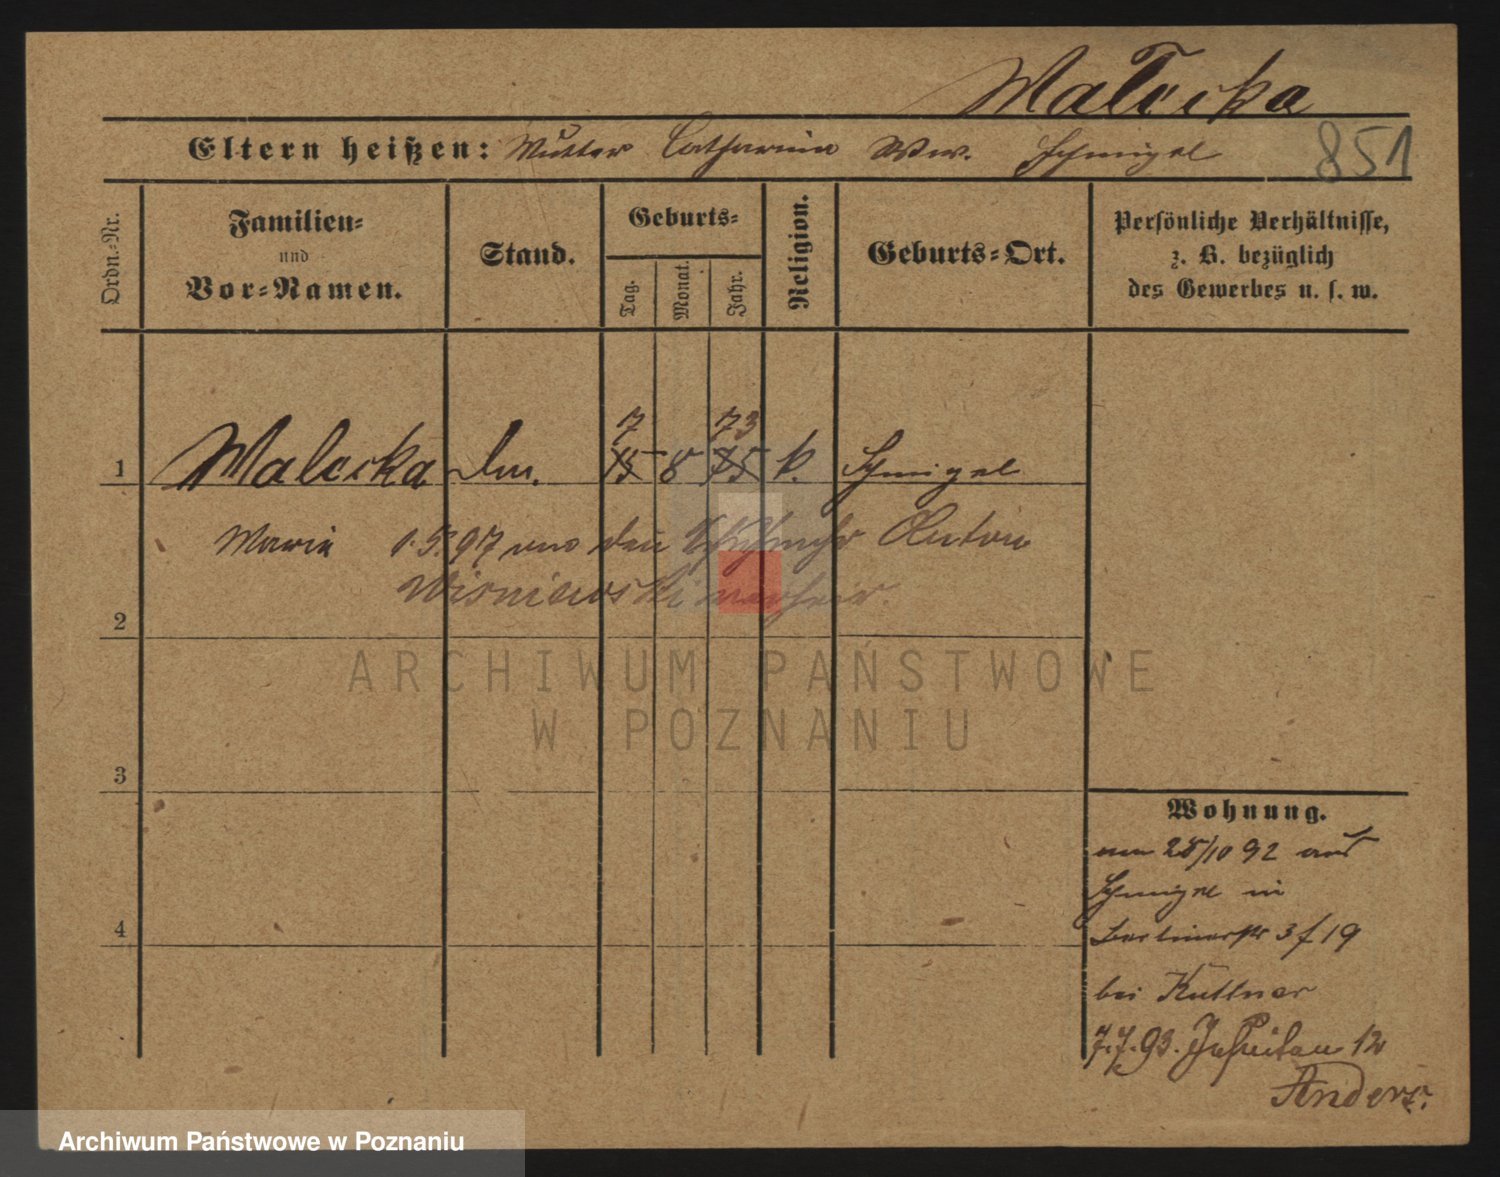 Małecka
Eltern heißen: Mutter Catharina Ww. Schmigel
851
Ordn.-Nr.
Familien-
und
Vor-Namen.
Stand.
Geburts-
Tag.
Monat.
Jahr.
Religion.
Geburts-Ort.
Persönliche Verhältnisse,
z. B. bezüglich
des Gewerbes u. s. w.
7 73
1 Malecka 15 8 75 k. Schmigel
Maria 1.5.97 den Anton
Wisniewski verheir.
2
ARCHIWUM PAŃSTWOWE
W POZNANIU
3
Wohnung.
28/10 92 aus
Schmigel in
Berlinerstr 3 f 19
4
bei Kuttner
7.7.93. Jesuiten 12
Anders.
Archiwum Państwowe w Poznaniu